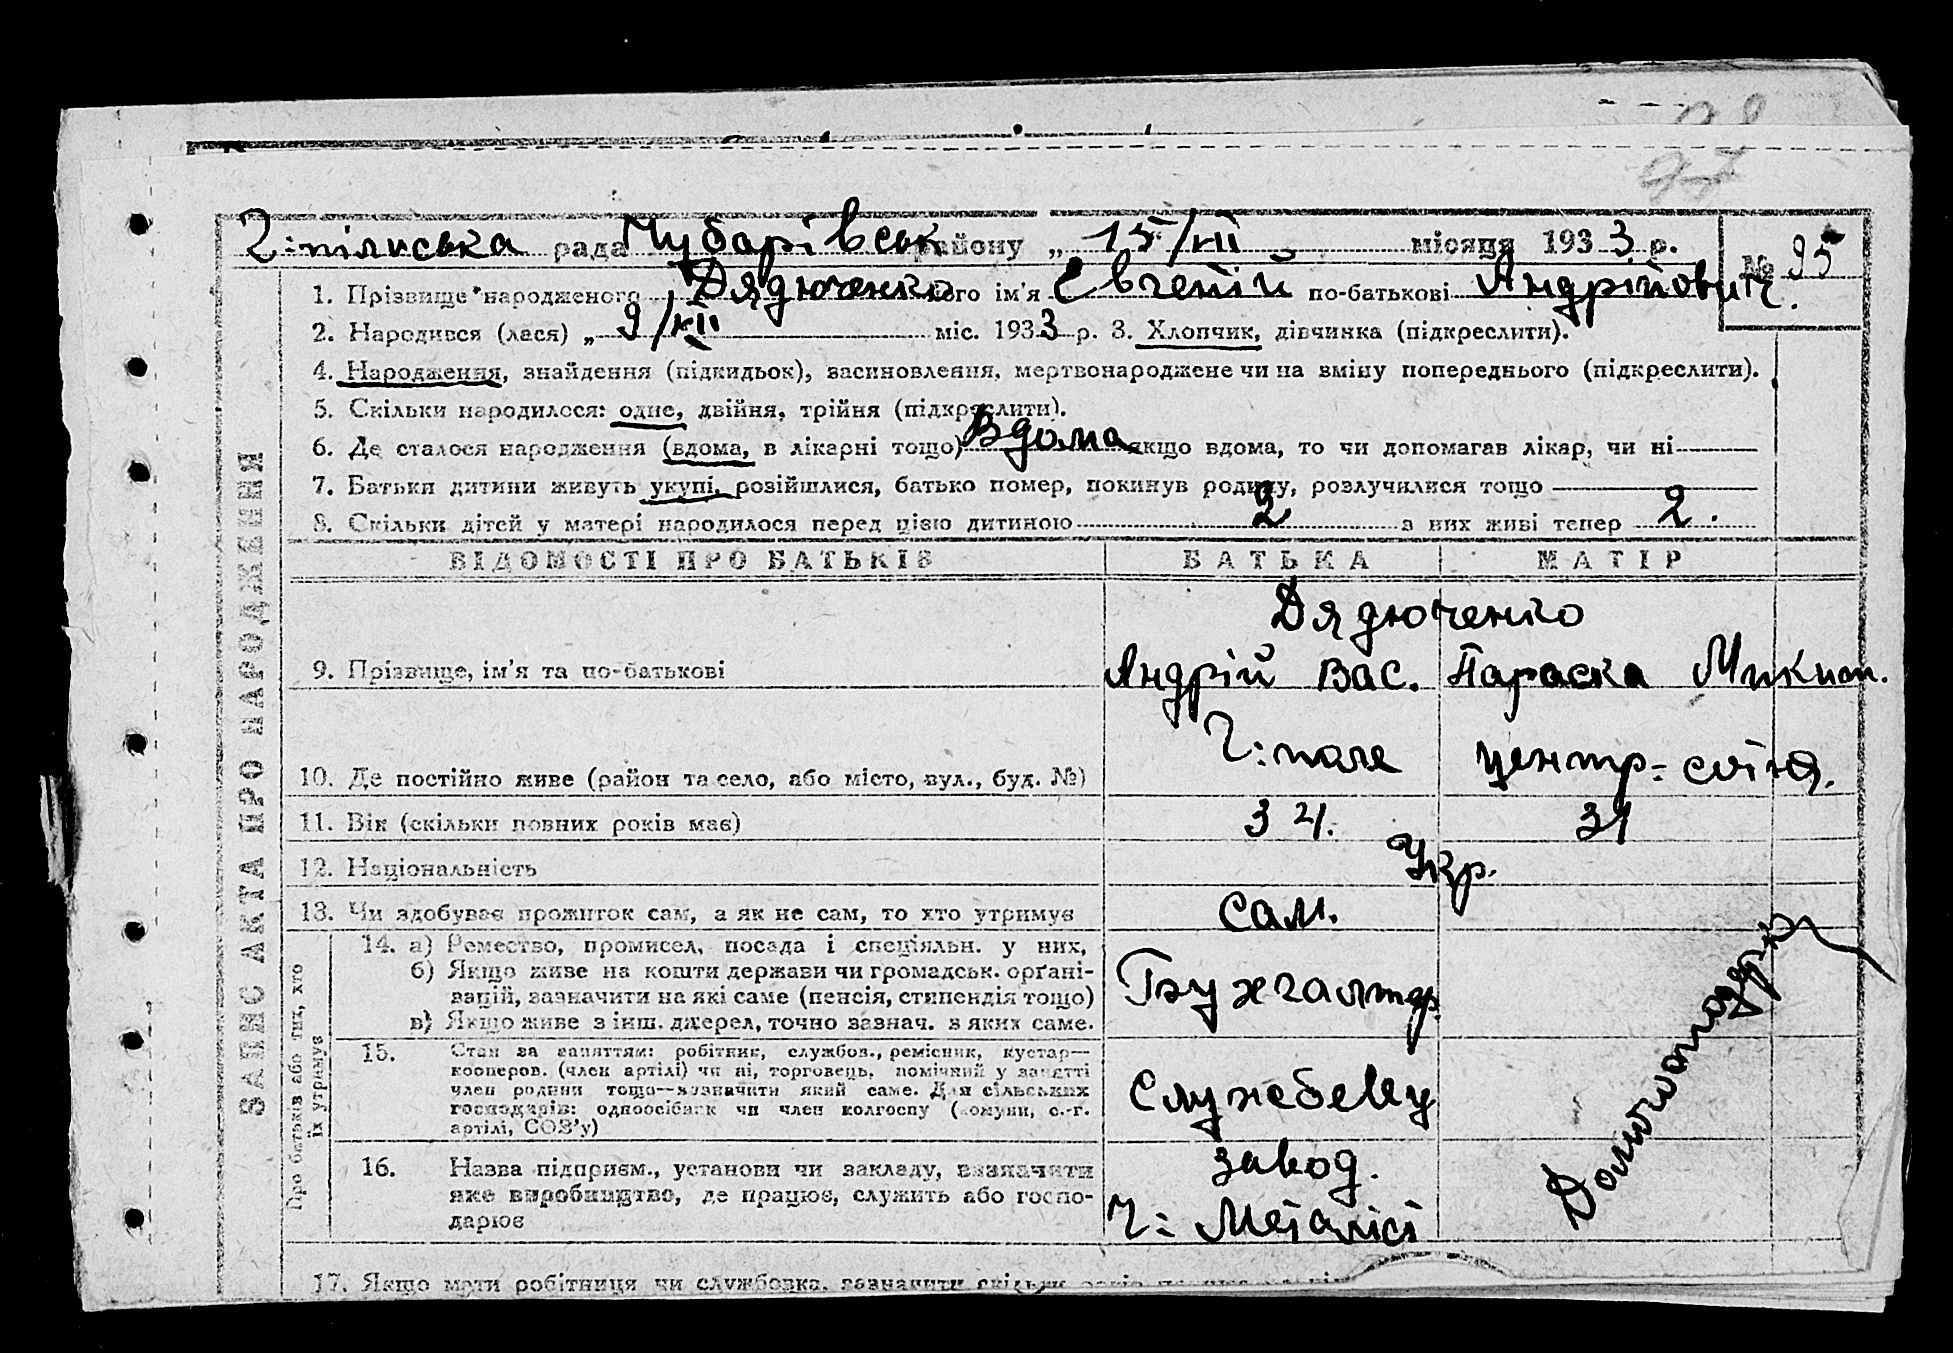 Г:пільська рада Чубарівськ району „ 15/XII місяця 1933 р. № 95
1. Прізвище народженого Дядюченко його ім'я Євгеній по-батькові Андрійович.
2. Народився (лася) „ 9/XII міс. 1933 р. 3. Хлопчик, дівчинка (підкреслити).
4. Народження, знайдення (підкидьок), засиновлення, мертвонароджене чи на зміну попереднього (підкреслити).
5. Скільки народилося: одне, двійня, трійня (підкреслити).
6. Де сталося народження (вдома, в лікарні тощо) Вдома якщо вдома, то чи допомагав лікар, чи ні
7. Батьки дитини живуть укупі, розійшлися, батько помер, покинув родину, розлучилися тощо
8. Скільки дітей у матері народилося перед цією дитиною 2 з них живі тепер 2.
ЗАПИС АКТА ПРО НАРОДЖЕННЯ
ВІДОМОСТІ ПРО БАТЬКІВ БАТЬКА МАТІР
Дядюченко
9. Прізвище, ім'я та по-батькові Андрій Вас. Параска Микит.
10. Де постійно живе (район та село, або місто, вул., буд. №) Г:поле центр=
11. Вік (скільки повних років має) 34. 31
12. Національність Укр.
13. Чи здобуває прожиток сам, а як не сам, то хто утримує сам.
Про батьків або тих, хто
їх утримує
14. а) Ремество, промисел, посада і спеціяльн. у них,
б) Якщо живе на кошти держави чи громадськ. орґані-
зацій, зазначити на які саме (пенсія, стипендія тощо)
в) Якщо живе з інш. джерел, точно зазнач. з яких саме.
Бухгалтер.
15. Стан за заняттям: робітник, службов., ремісник, кустар—
кооперов. (член артілі) чи ні, торговець, помічний у занятті
член родини тощо—зазначити який саме. Для сільських
господарів: одноосібник чи член колгоспу (комуни, с.-г.
артілі, СОЗ'у)
16. Назва підприєм., установи чи закладу, зазначити
яке виробництво, де працює, служить або госпо-
дарює
завод.
Г:
17. Якщо мати робітниця чи службовка, зазначити скільки